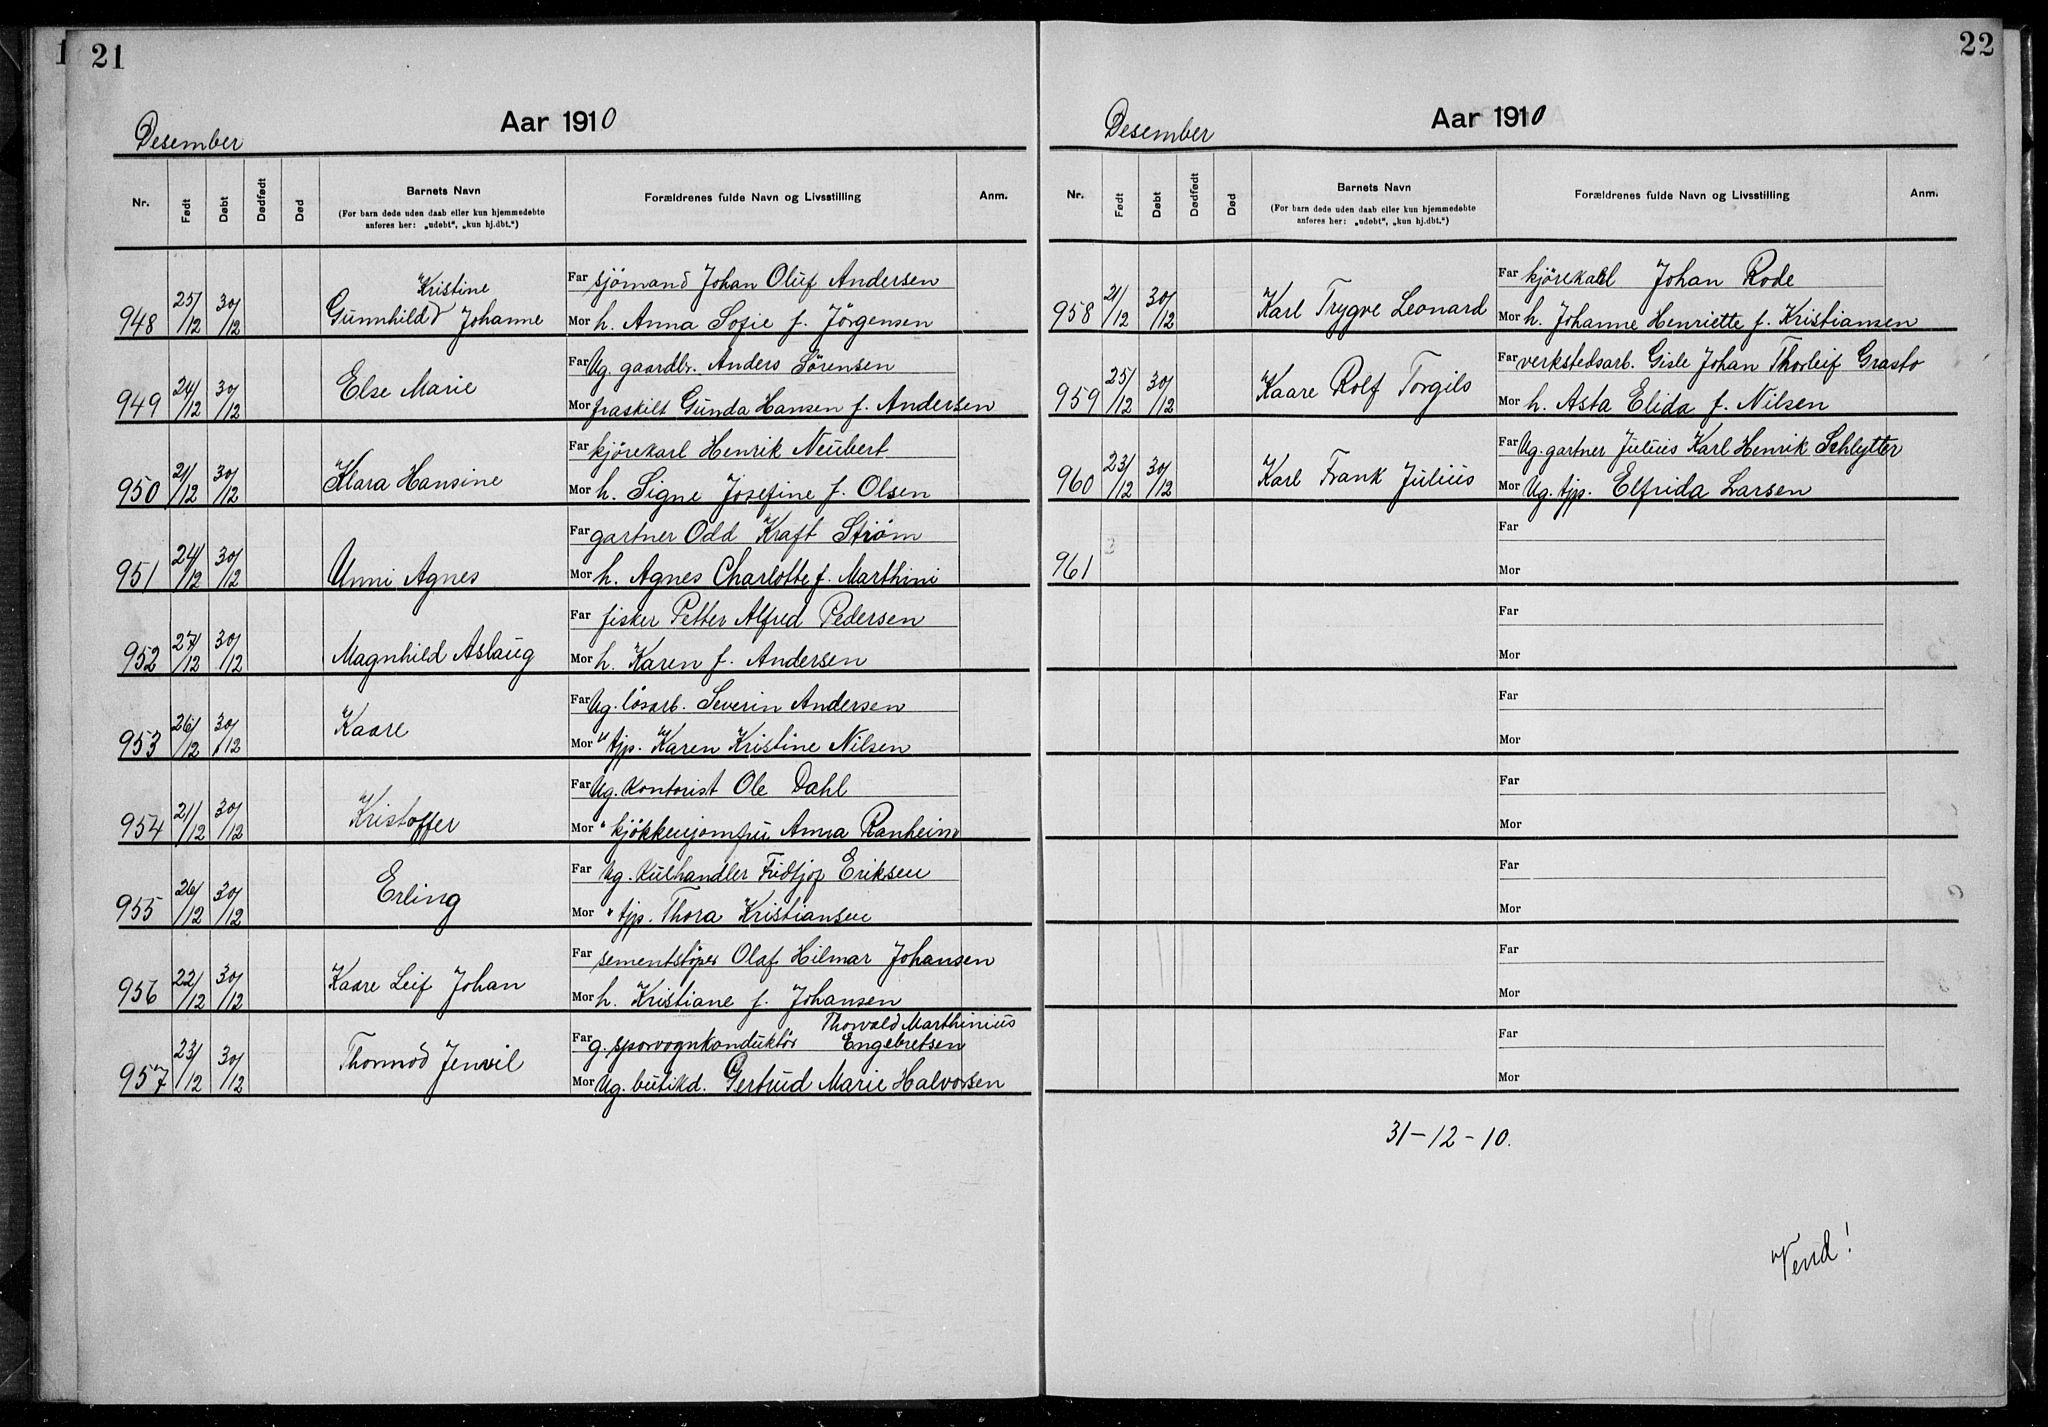 1 21
Aar 1910
Desember
Nr. Født Døbt Dødfødt Død Barnets Navn Forældrenes fulde Navn og Livsstilling Anm.
(For barn døde uden daab eller kun hjemmedøbte
anføres her: „udøbt", „kun hj.dbt.")
948 25/12 30/12 Gunnhild Kristine Johanne Far sjömand Johan Oluf Andersen
Mor h. Anna Sofie f. Jörgensen
949 24/12 30/12 Else Marie Far Ug. gaardbr. Anders Sörensen
Mor fraskilt Gunda Hansen f. Andersen
950 21/12 30/12 Klara Hansine Far kjörekarl Henrik Neubert
Mor h. Signe Josefine f. Olsen
951 24/12 30/12 Unni Agnes Far gartner Odd Kraft Strøm
Mor h. Agnes Charlotte f. Marthini
952 27/12 30/12 Magnhild Aslaug Far fisker Petter Alfred Pedersen
Mor h. Karen f. Andersen
953 26/12 30/12 Kaare Far Ug. lösarb. Severin Andersen
Mor " tjp. Karen Kristine Nilsen
954 21/12 30/12 Kristoffer Far Ug. kontorist Ole Dahl
Mor " kjökkenjomfru Anna Ranheim
955 26/12 30/12 Erling Far Ug. kulhandler Fridtjof Eriksen
Mor " tjp. Thora Kristiansen
956 22/12 30/12 Kaare Leif Johan Far sementstöper Olaf Hilmar Johansen
Mor h. Kristiane f. Johansen
957 23/12 30/12 Thormod Jenvil Far g. sporvognkonduktör Thorvald Marthinius Engebretsen
Mor Ug. butikd. Gertrud Marie Halvorsen
22
Aar 1910
Desember
Nr. Født Døbt Dødfødt Død Barnets Navn Forældrenes fulde Navn og Livsstilling Anm.
(For barn døde uden daab eller kun hjemmedøbte
anføres her: „udøbt", „kun hj.dbt.")
958 21/12 30/12 Karl Trygve Leonard Far kjörekarl Johan Rode
Mor h. Johanne Henriette f. Kristiansen
959 25/12 30/12 Kaare Rolf Torgils Far verkstedsarb. Gisle Johan Thorleif Grasto
Mor h. Asta Elida f. Nilsen
960 23/12 30/12 Karl Frank Julius Far Ug. gartner Julius Karl Henrik Schlytter
Mor Ug. tjp. Elfrida Larsen
961 Far
Mor
Far
Mor
Far
Mor
Far
Mor
Far
Mor
Far
Mor
Far
Mor
31-12-10.
Vend!